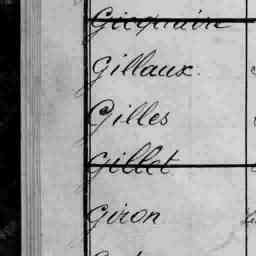 Gicquiaire
Gillaux.
Gilles
Gillet
Giron